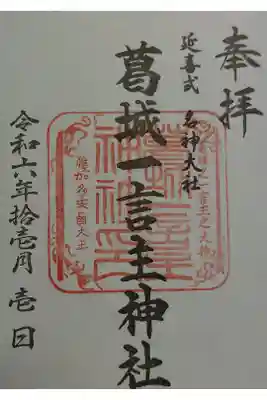 奉拝
延喜式 名神大社
葛城一言主神社
令和六年拾壱月壱日